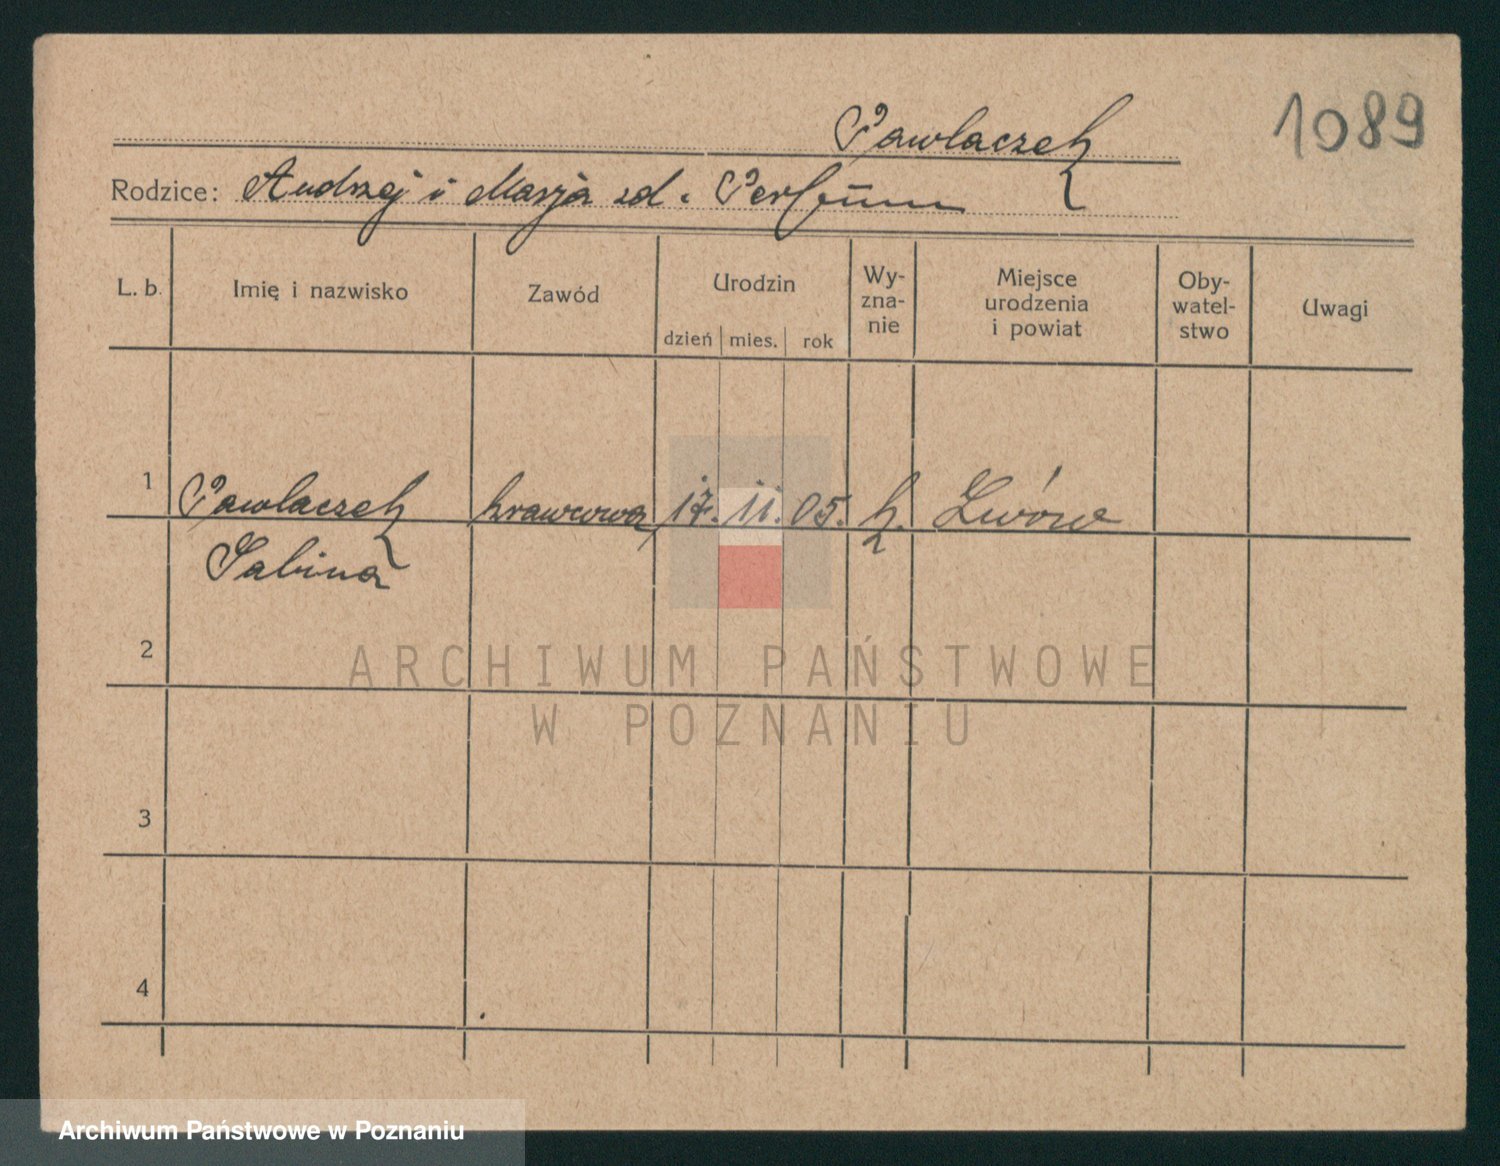 1089
Pawlaczek
Rodzice: Andrzej i Marja zd.
L. b. Imię i nazwisko Zawód Urodzin Wy-zna-nie Miejsce urodzenia i powiat Oby-watel-stwo Uwagi
dzień mies. rok
1 Pawlaczek krawcowa 17. 11. 05. k. Lwów
Sabina
2
ARCHIWUM PAŃSTWOWE
W POZNANIU
3
4
Archiwum Państwowe w Poznaniu